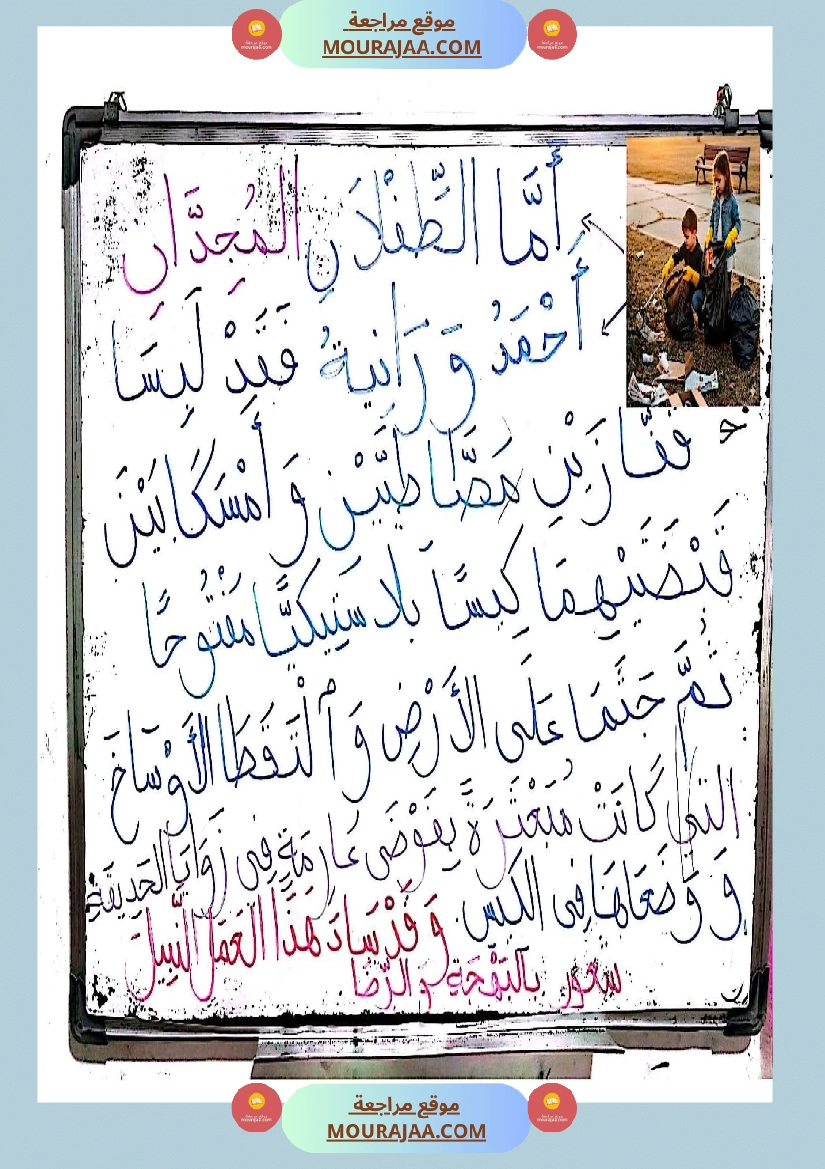 موقع مراجعة
MOURAJAA.COM
أَمَّا الطِّفْلَانِ المُجِدَّانِ
أَحْمَدُ وَ رَانِيةُ فَقَدْ لَبِسَا
قفَّازَيْنِ مَطَّاطِيَّيْنِ وَ أَمْسَكَا بَيْنَ
قَبْضَتَيْهِمَا كِيسًا بَلَاسْتِيكِيًّا مَفْتُوحًا
ثُمَّ جَثَمَا عَلَى الأَرْضِ وَ الْتَقَطَا الأَوْسَاخَ
التي كَانَتْ مُبَعْثَرَةً بِفَوْضَى عَارِمَةٍ فِي زَوَايَا الحَدِيقَةِ
وَ وَضَعَاهَا فِي الكِيسِ وَ قَدْ سَادَ هَذَا العَمَلَ النَّبِيلَ
شعور بالبَهْجَةِ وَ الرِّضَا
موقع مراجعة
MOURAJAA.COM